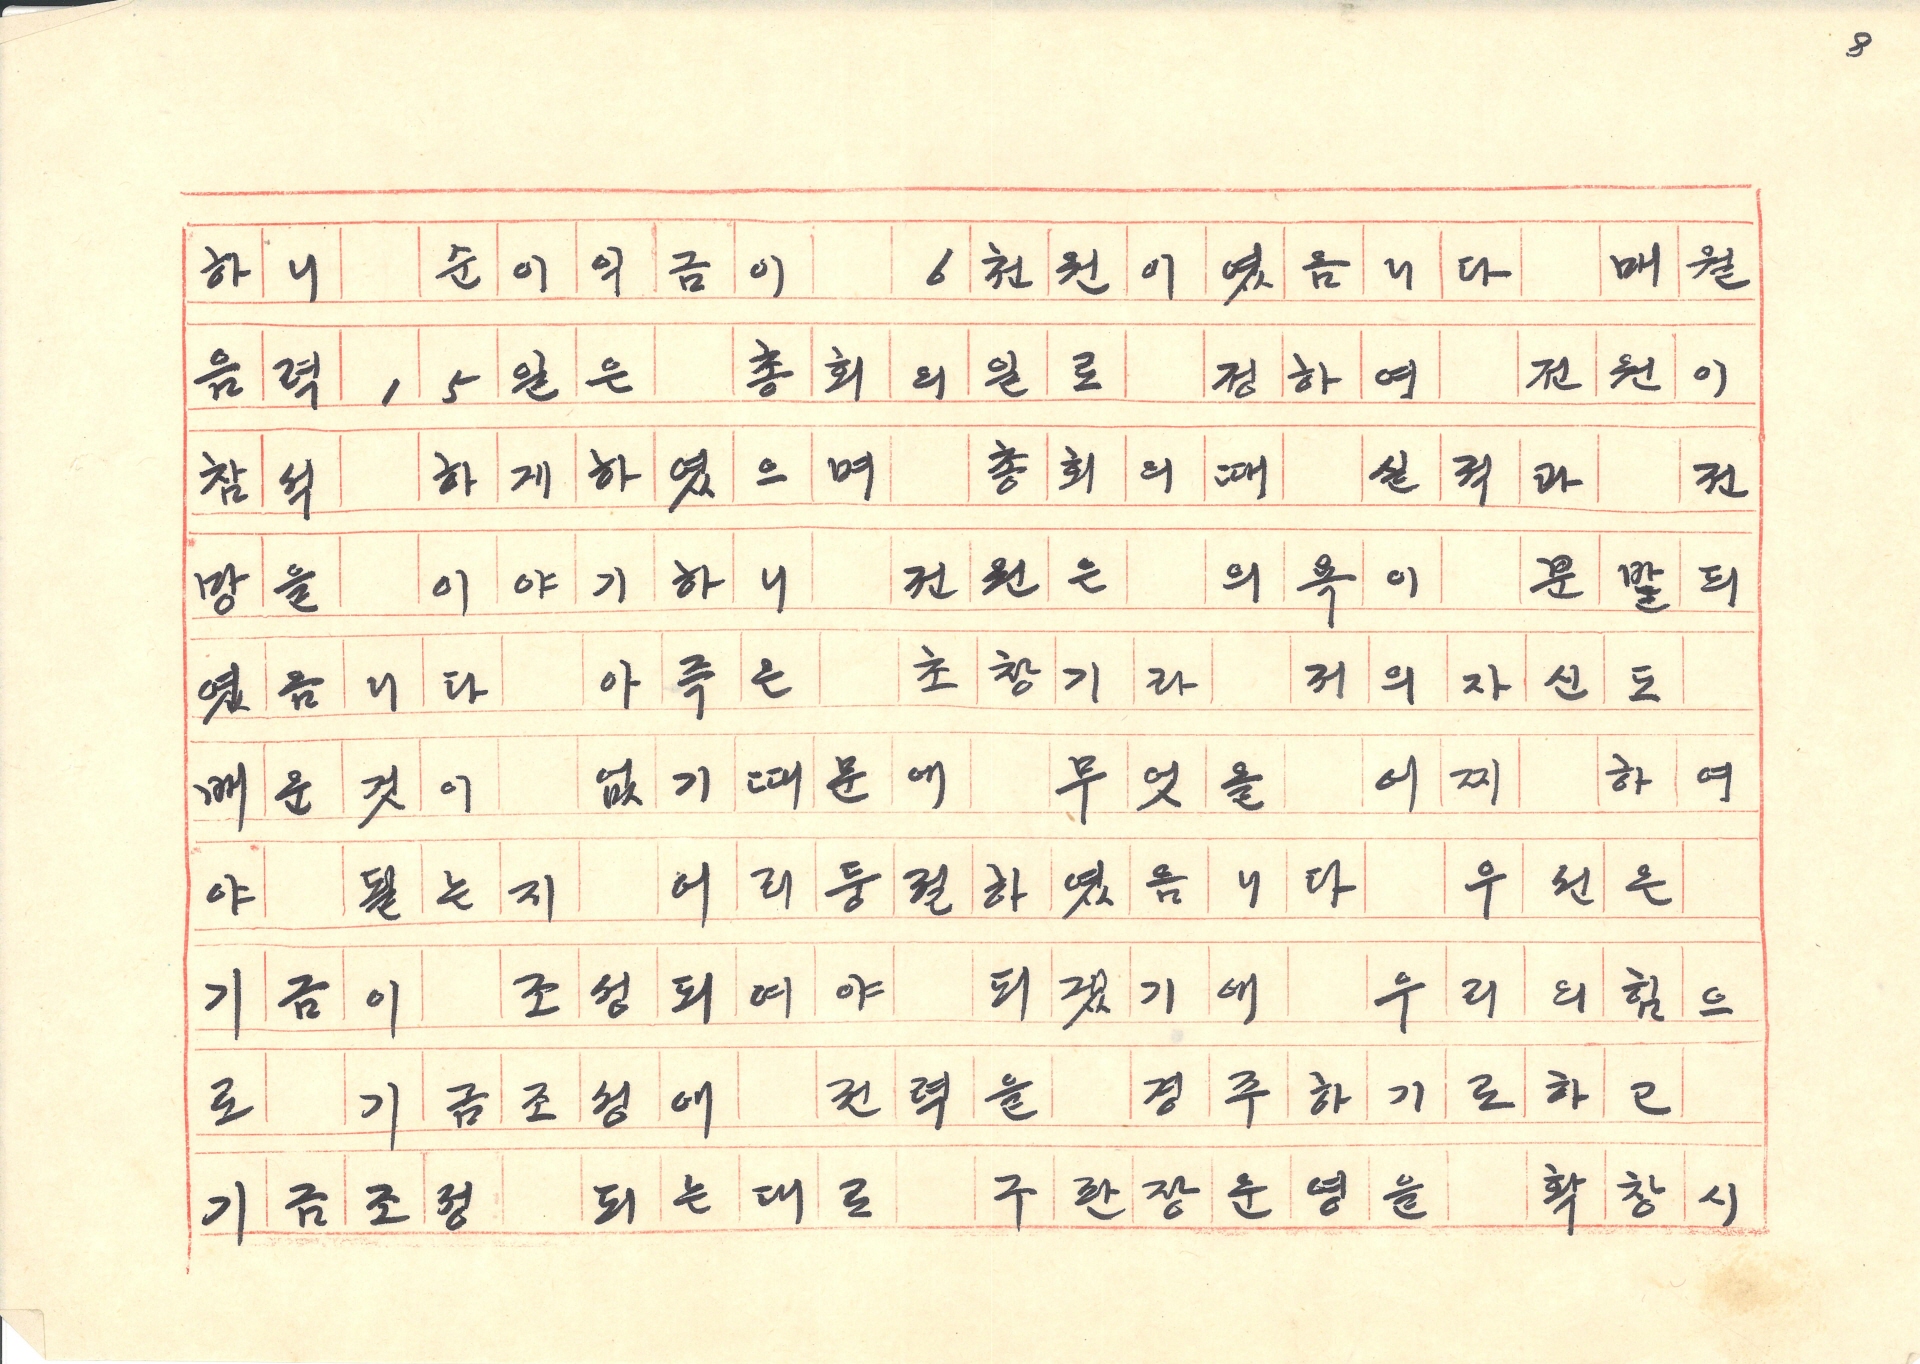 8
하니 순이익금이 6천원이였음니다 매월
음력 15일은 총회의일로 정하여 전원이
참석 하게하였으며 총회의때 실적과 전
망을 이야기하니 전원은 의욕이 문발되
였음니다 아죽은 초창기라 저의자신도
빼운것이 없기때문에 무엇을 어찌 하여
야 될는지 어리둥절하였음니다 우선은
기금이 조성되여야 되겠기에 우리의힘으
로 기금조성에 전력을 경주하기로하고
기금조정 되는대로 구판장운영을 확창시